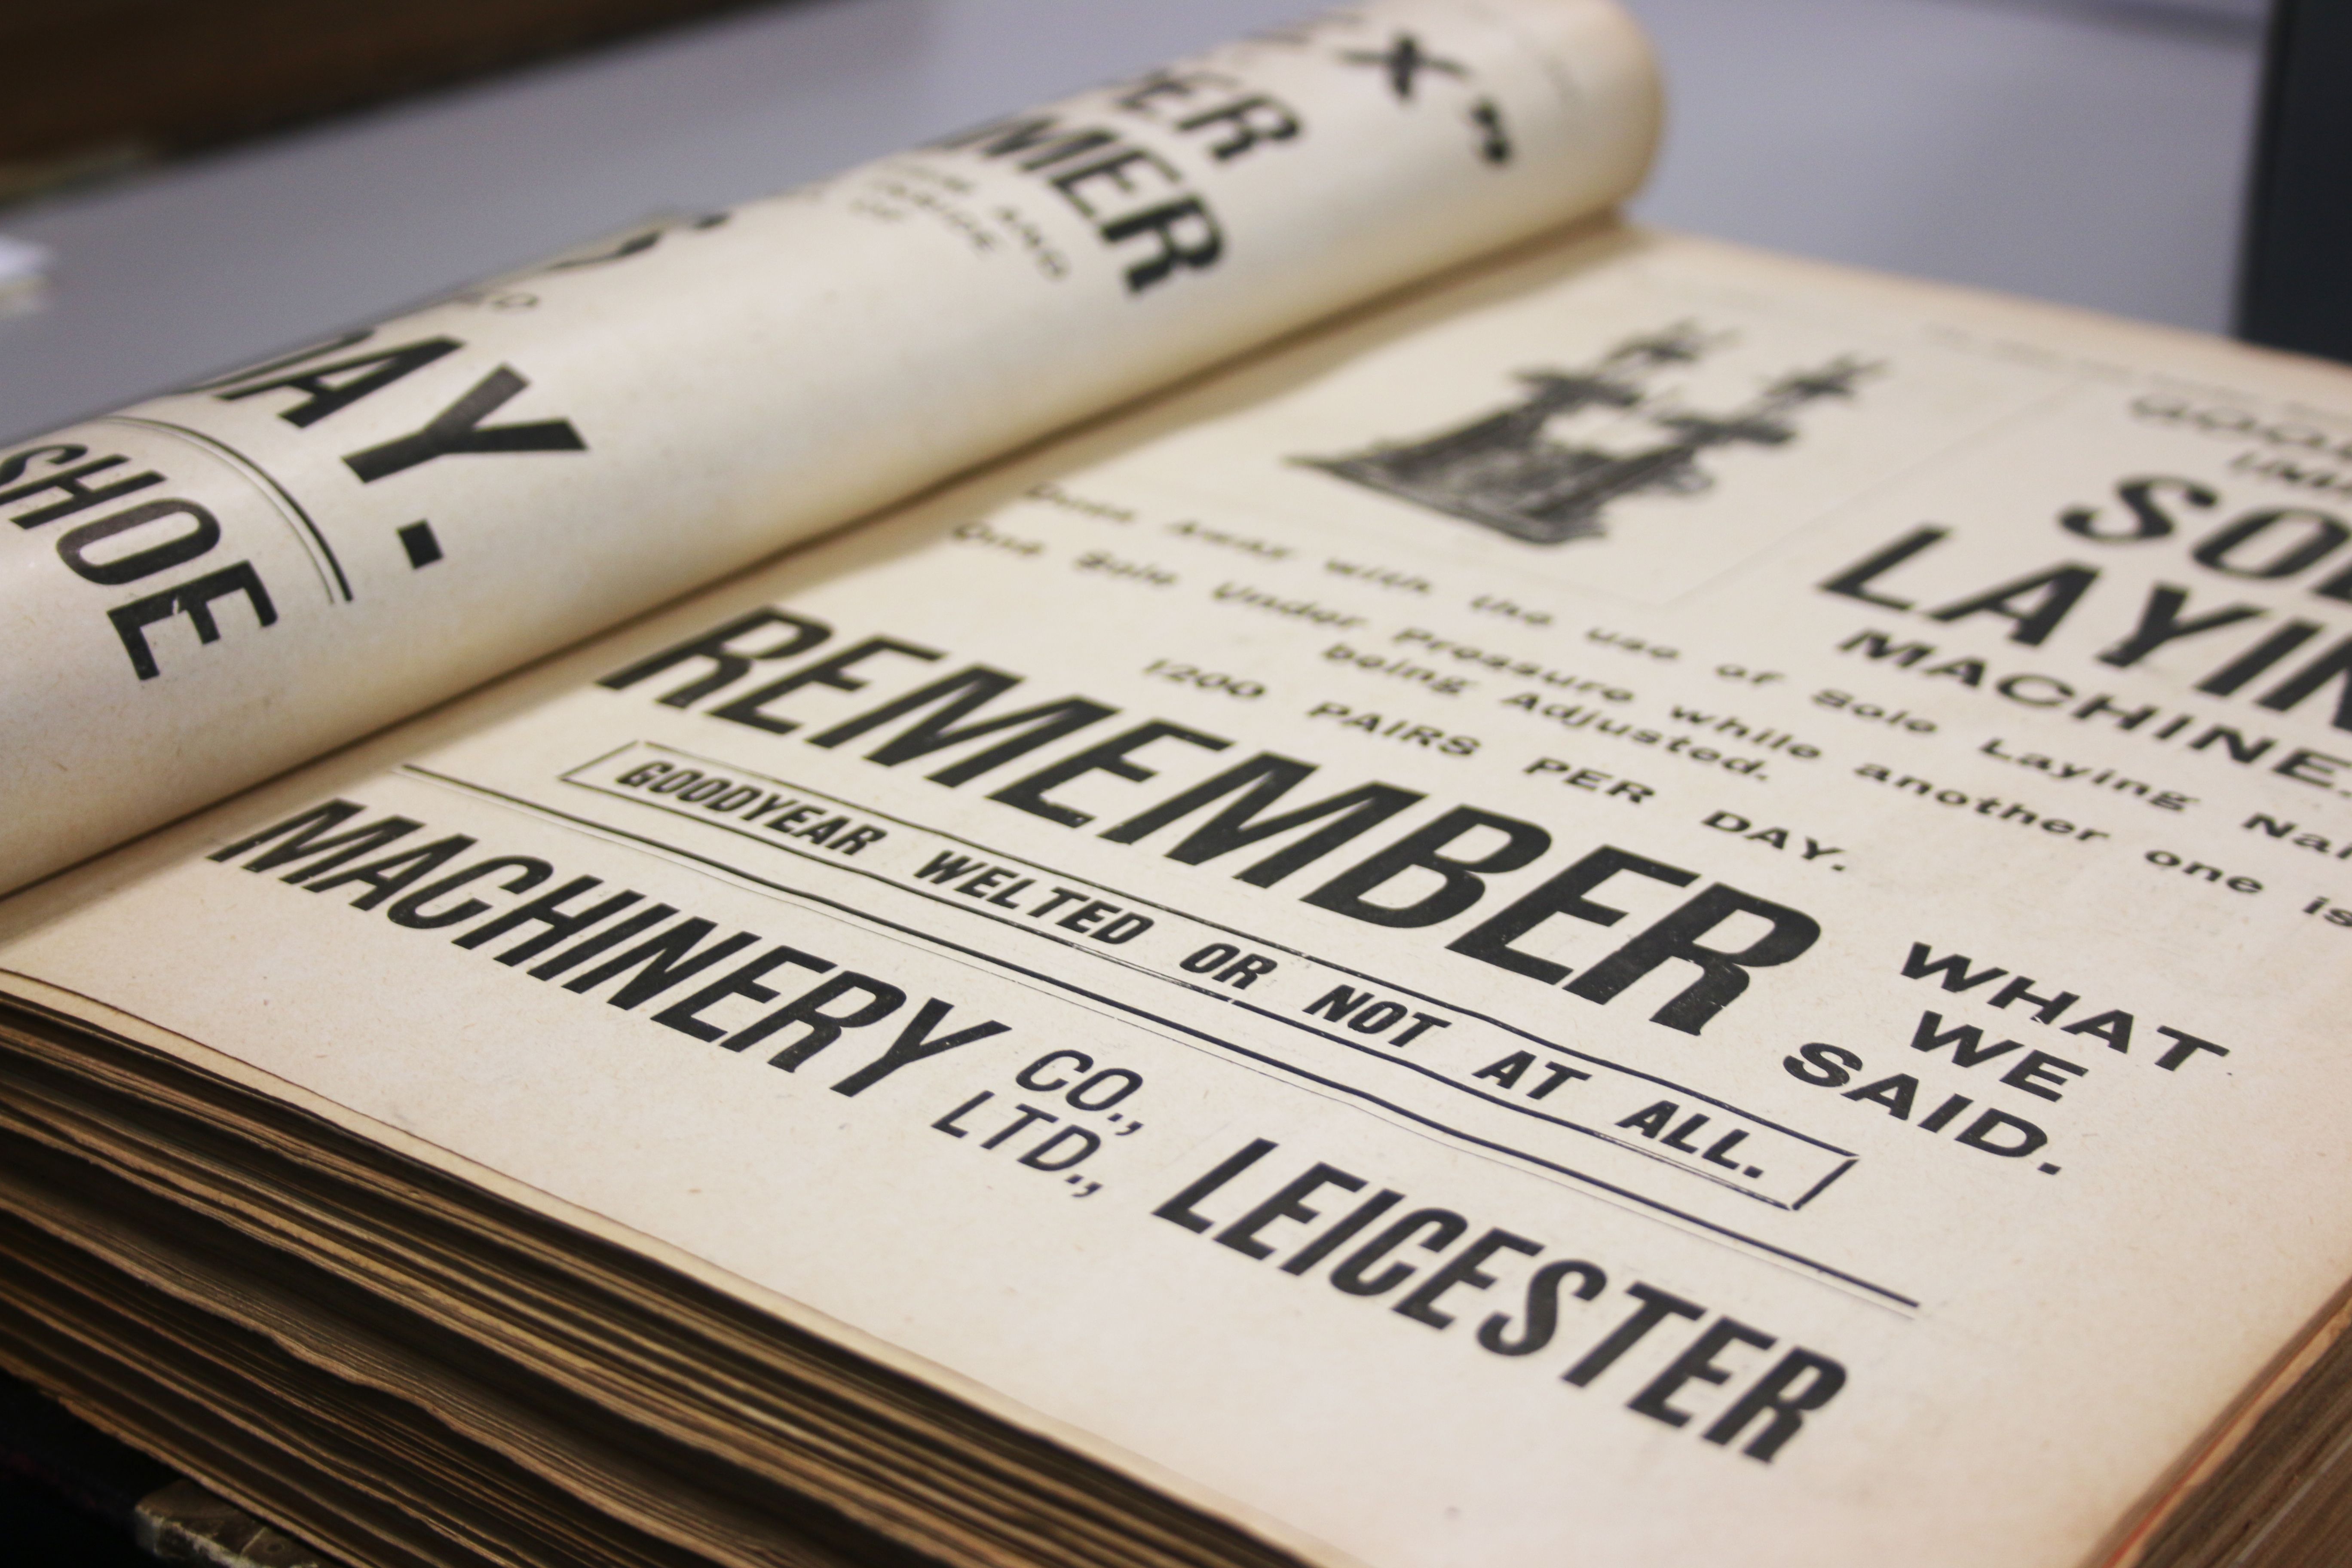 X"
ER
MER
AND
DAY.
SHOE
SOL
LAYIN
MACHINE.
Does Away with the use of Sole Laying Nai
One Sole Under Pressure while another one is
being Adjusted.
1200 PAIRS PER DAY.
REMEMBER WHAT
WE
SAID.
GOODYEAR WELTED OR NOT AT ALL.
MACHINERY CO.,
LTD., LEICESTER